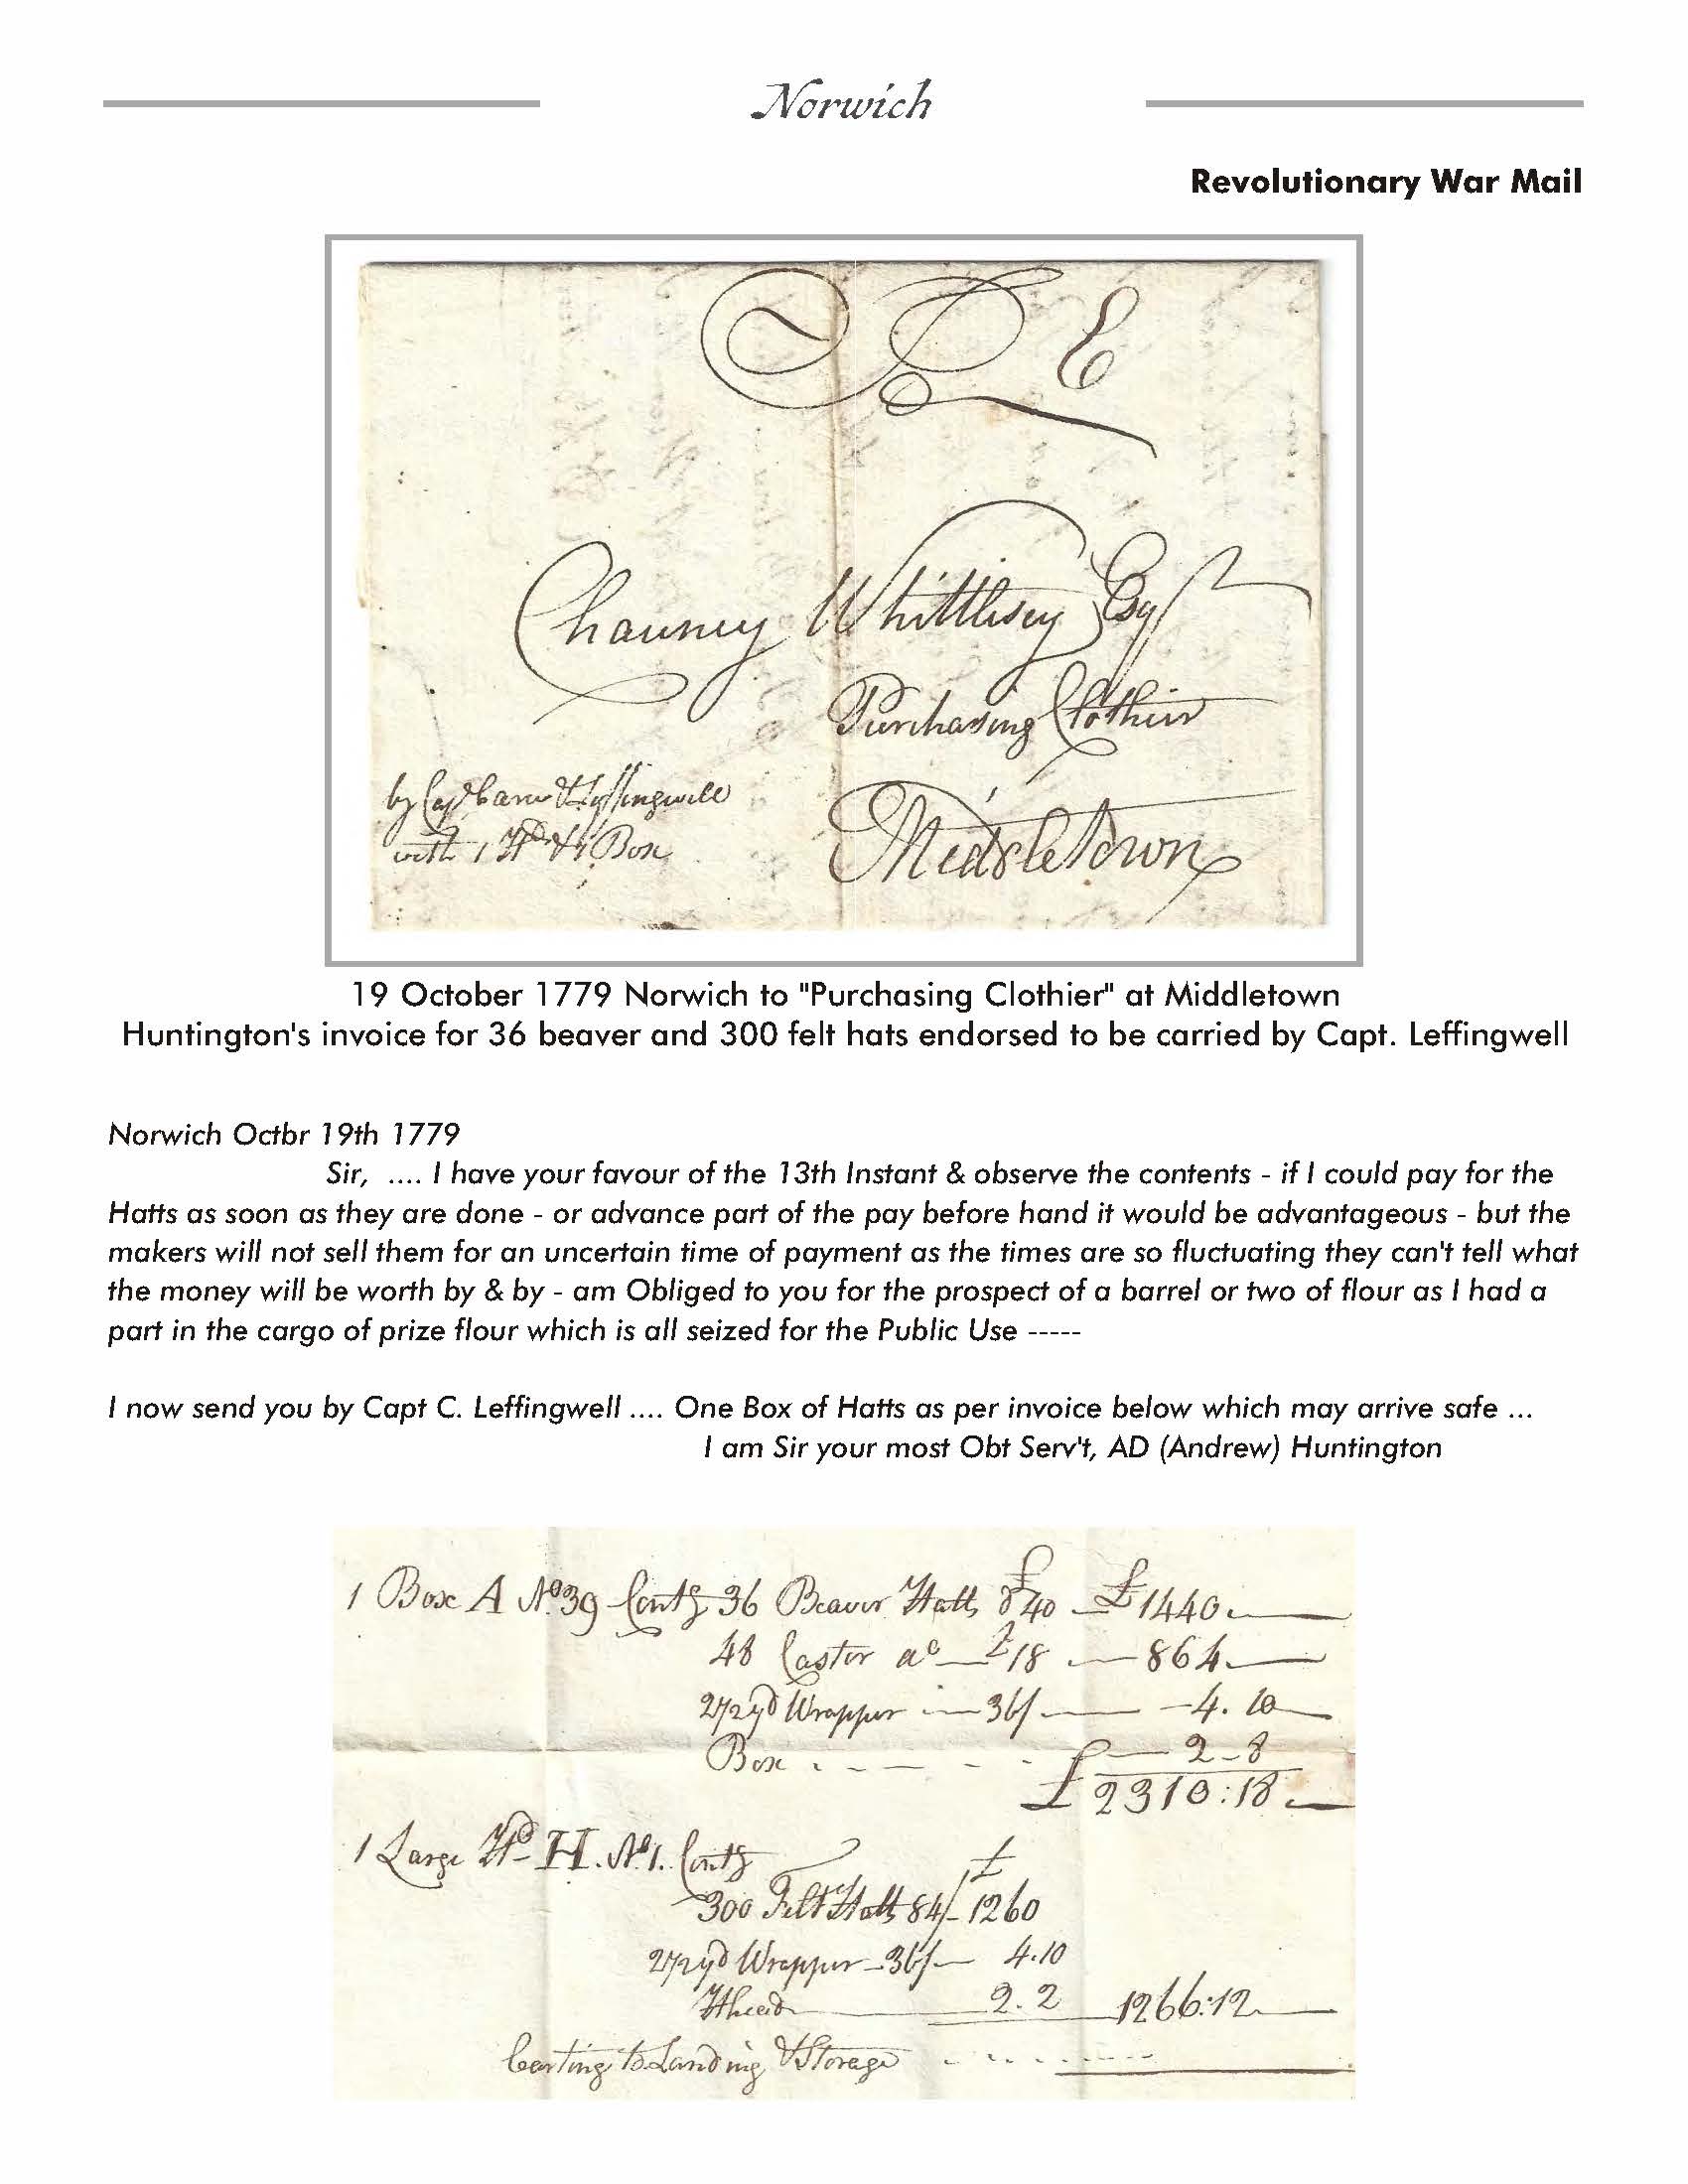 Norwich
Revolutionary War Mail
Chauncy Whittlesey Esqr
Purchasing Clothier
by Capt Leffingwell
with 1 Hd & 1 Box
MiddleTown
19 October 1779 Norwich to "Purchasing Clothier" at Middletown
Huntington's invoice for 36 beaver and 300 felt hats endorsed to be carried by Capt. Leffingwell
Norwich Octbr 19th 1779
Sir, .... I have your favour of the 13th Instant & observe the contents - if I could pay for the
Hatts as soon as they are done - or advance part of the pay before hand it would be advantageous - but the
makers will not sell them for an uncertain time of payment as the times are so fluctuating they can't tell what
the money will be worth by & by - am Obliged to you for the prospect of a barrel or two of flour as I had a
part in the cargo of prize flour which is all seized for the Public Use -----
I now send you by Capt C. Leffingwell .... One Box of Hatts as per invoice below which may arrive safe ...
I am Sir your most Obt Serv't, AD (Andrew) Huntington
1 Box A No. 39 Contg 36 Beaver Hatts £40 £1440
48 Castor do £18 864
2 1/2 yd Wrapper 36/ 4.10
Box 2-8
£2310:18
1 Large Hd H. No 1. Contg £
300 Felt Hatts 84/ 1260
2 1/2 yd Wrapper 36/ 4.10
2.2 1266:12
Carting to Landing & Storage